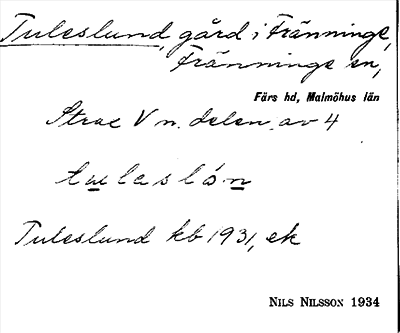 Tuleslund, gård i Fränninge,
Fränninge sn,
Färs hd, Malmöhus län
Strax V n. delen av 4
tuleslón
Tuleslund kb 1931, ek
NILS NILSSON 1934